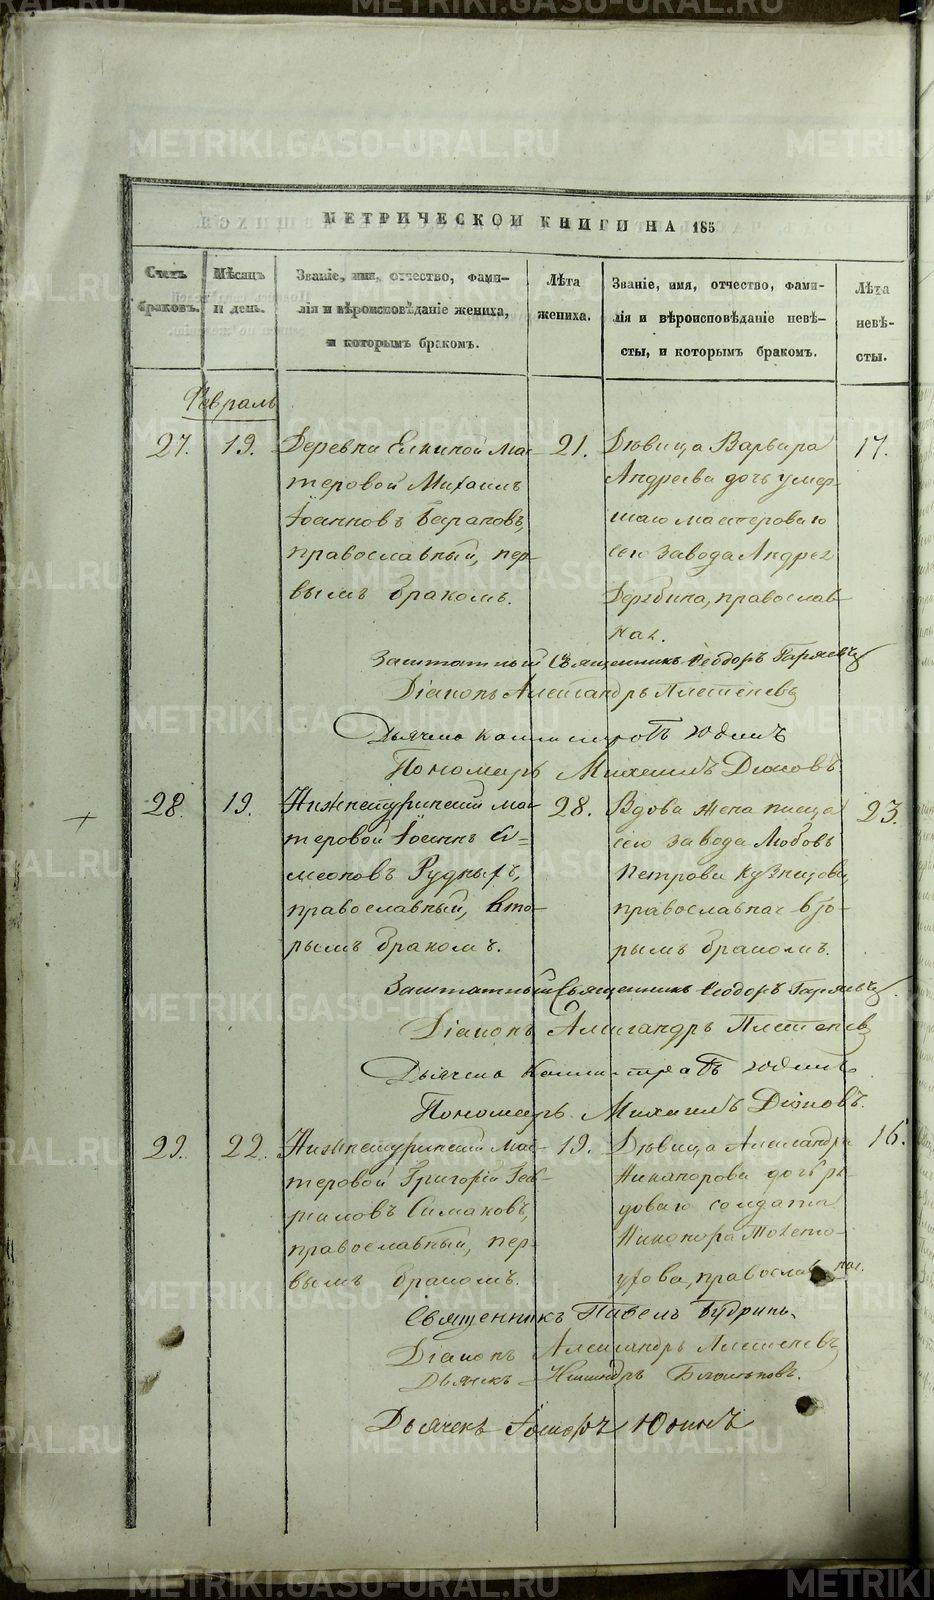 МЕТРИЧЕСКОЙ КНИГИ НА 185
Счетъ браковъ.
Мѣсяцъ и день.
Званіе, имя, отчество, фами-
лія и вѣроисповѣданіе жениха,
и которымъ бракомъ.
Лѣта
жениха.
Званіе, имя, отчество, фами-
лія и вѣроисповѣданіе невѣ-
сты, и которымъ бракомъ.
Лѣта
невѣ-
сты.
Февраль
27. 19. Деревни Елкиной мас-
теровой Михаилъ
Іоанновъ Барановъ,
православный, пер-
вымъ бракомъ.
21.
Дѣвица Варвара
Андреева дочь умер-
шаго мастероваго
сего завода Андрея
Дерябина, православ-
ная.
17.
Заштатный Священникъ Ѳеодоръ Гаряевъ
Діаконъ Александръ Плетеневъ
Дьячекъ Каллистратъ Юдинъ
Пономарь Михаилъ Діоковъ.
28. 19. Нижнетуринскій мас-
теровой Іоаннъ Си-
меоновъ Рудныхъ,
православный, вто-
рымъ бракомъ.
28.
Вдова жена писца
сего завода Любовь
Петрова Кузнецова,
православная вто-
рымъ бракомъ.
23.
Заштатный Священникъ Ѳеодоръ Гаряевъ
Діаконъ Александръ Плетеневъ
Дьячекъ Каллистратъ Юдинъ
Пономарь Михаилъ Діоковъ.
29. 22. Нижнетуринскій мас-
теровой Григорій Гав-
риловъ Симаковъ,
православный, пер-
вымъ бракомъ.
19.
Дѣвица Александра
Никанорова дочь ря-
доваго солдата
Никанора
православная.
16.
Священникъ Павелъ Бударинъ.
Діаконъ Александръ Плетеневъ
Дьячекъ
Дьячекъ Юминъ